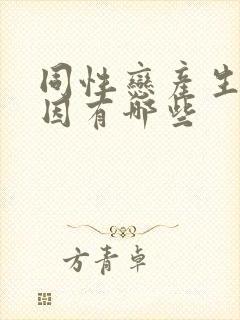 同性戀產生
因有哪些
方青卓